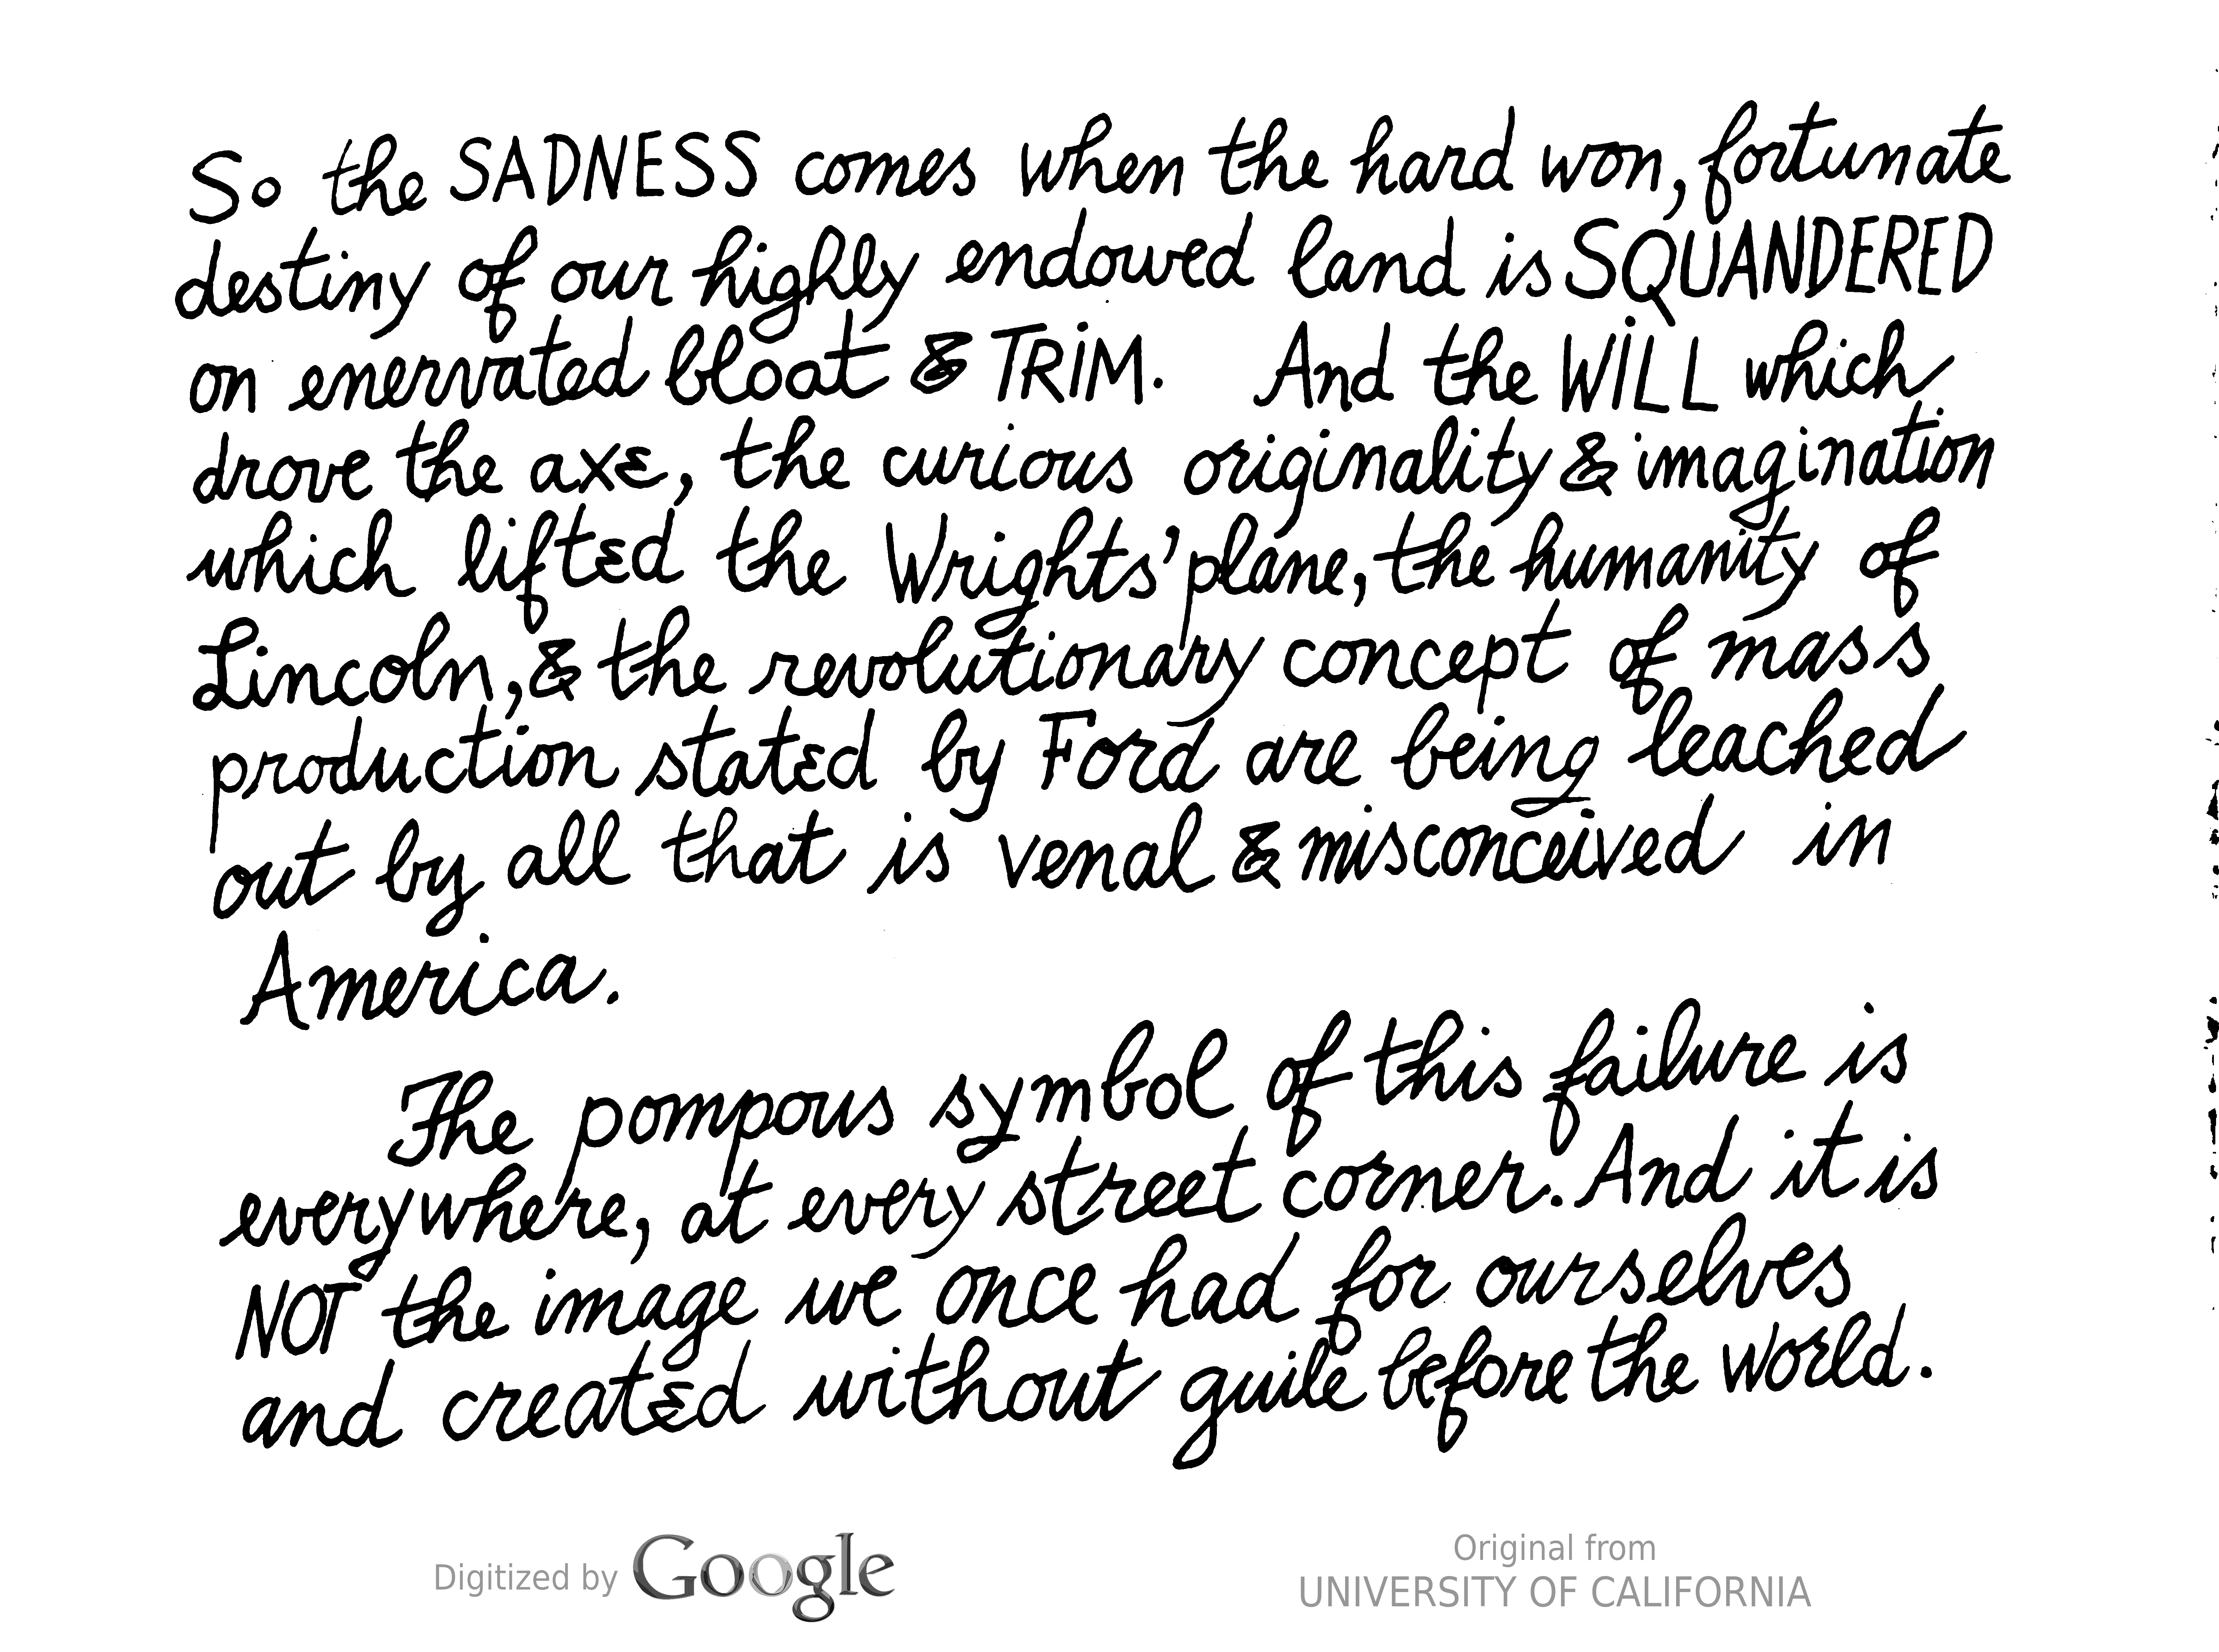 So the SADNESS comes when the hard won, fortunate
destiny of our highly endowed land is SQUANDERED
on enervated bloat & TRiM. And the WiLL which
drove the axe, the curious originality & imagination
which lifted the Wrights' plane, the humanity of
Lincoln, & the revolutionary concept of mass
production stated by Ford are being leached
out by all that is venal & misconceived in
America.
The pompous symbol of this failure is
everywhere, at every street corner. And it is
NOT the image we once had for ourselves
and created without guile before the world.
Digitized by Google
Original from
UNIVERSITY OF CALIFORNIA